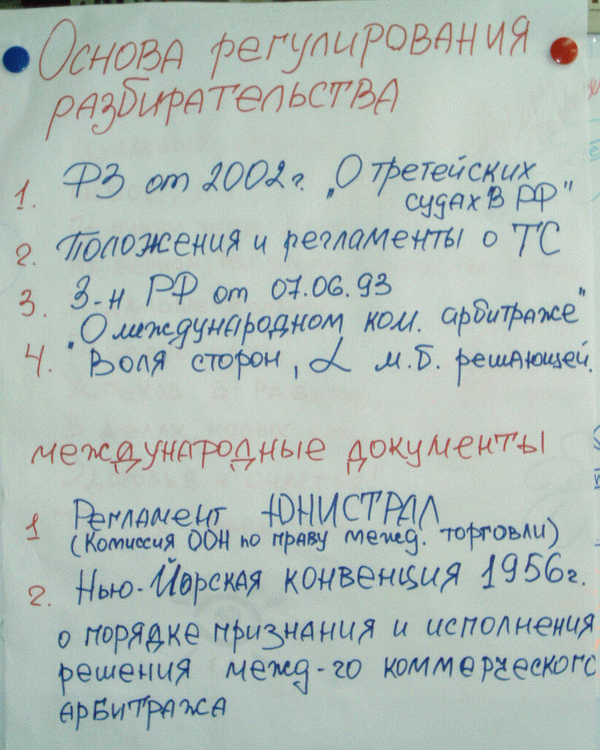 Основа регулирования
разбирательства
1. ФЗ от 2002г. „О третейских
судах в РФ"
2. Положения и регламенты о ТС
3. З-н РФ от 07.06.93
"О международном ком. арбитраже"
4. Воля сторон, L м.б. решающей.
международные документы
1 Регламент ЮНИСТРАЛ
(Комиссия ООН по праву межд. торговли)
2. Нью-Йорская конвенция 1956г.
о порядке признания и исполнения
решения межд-го коммерческого
арбитража